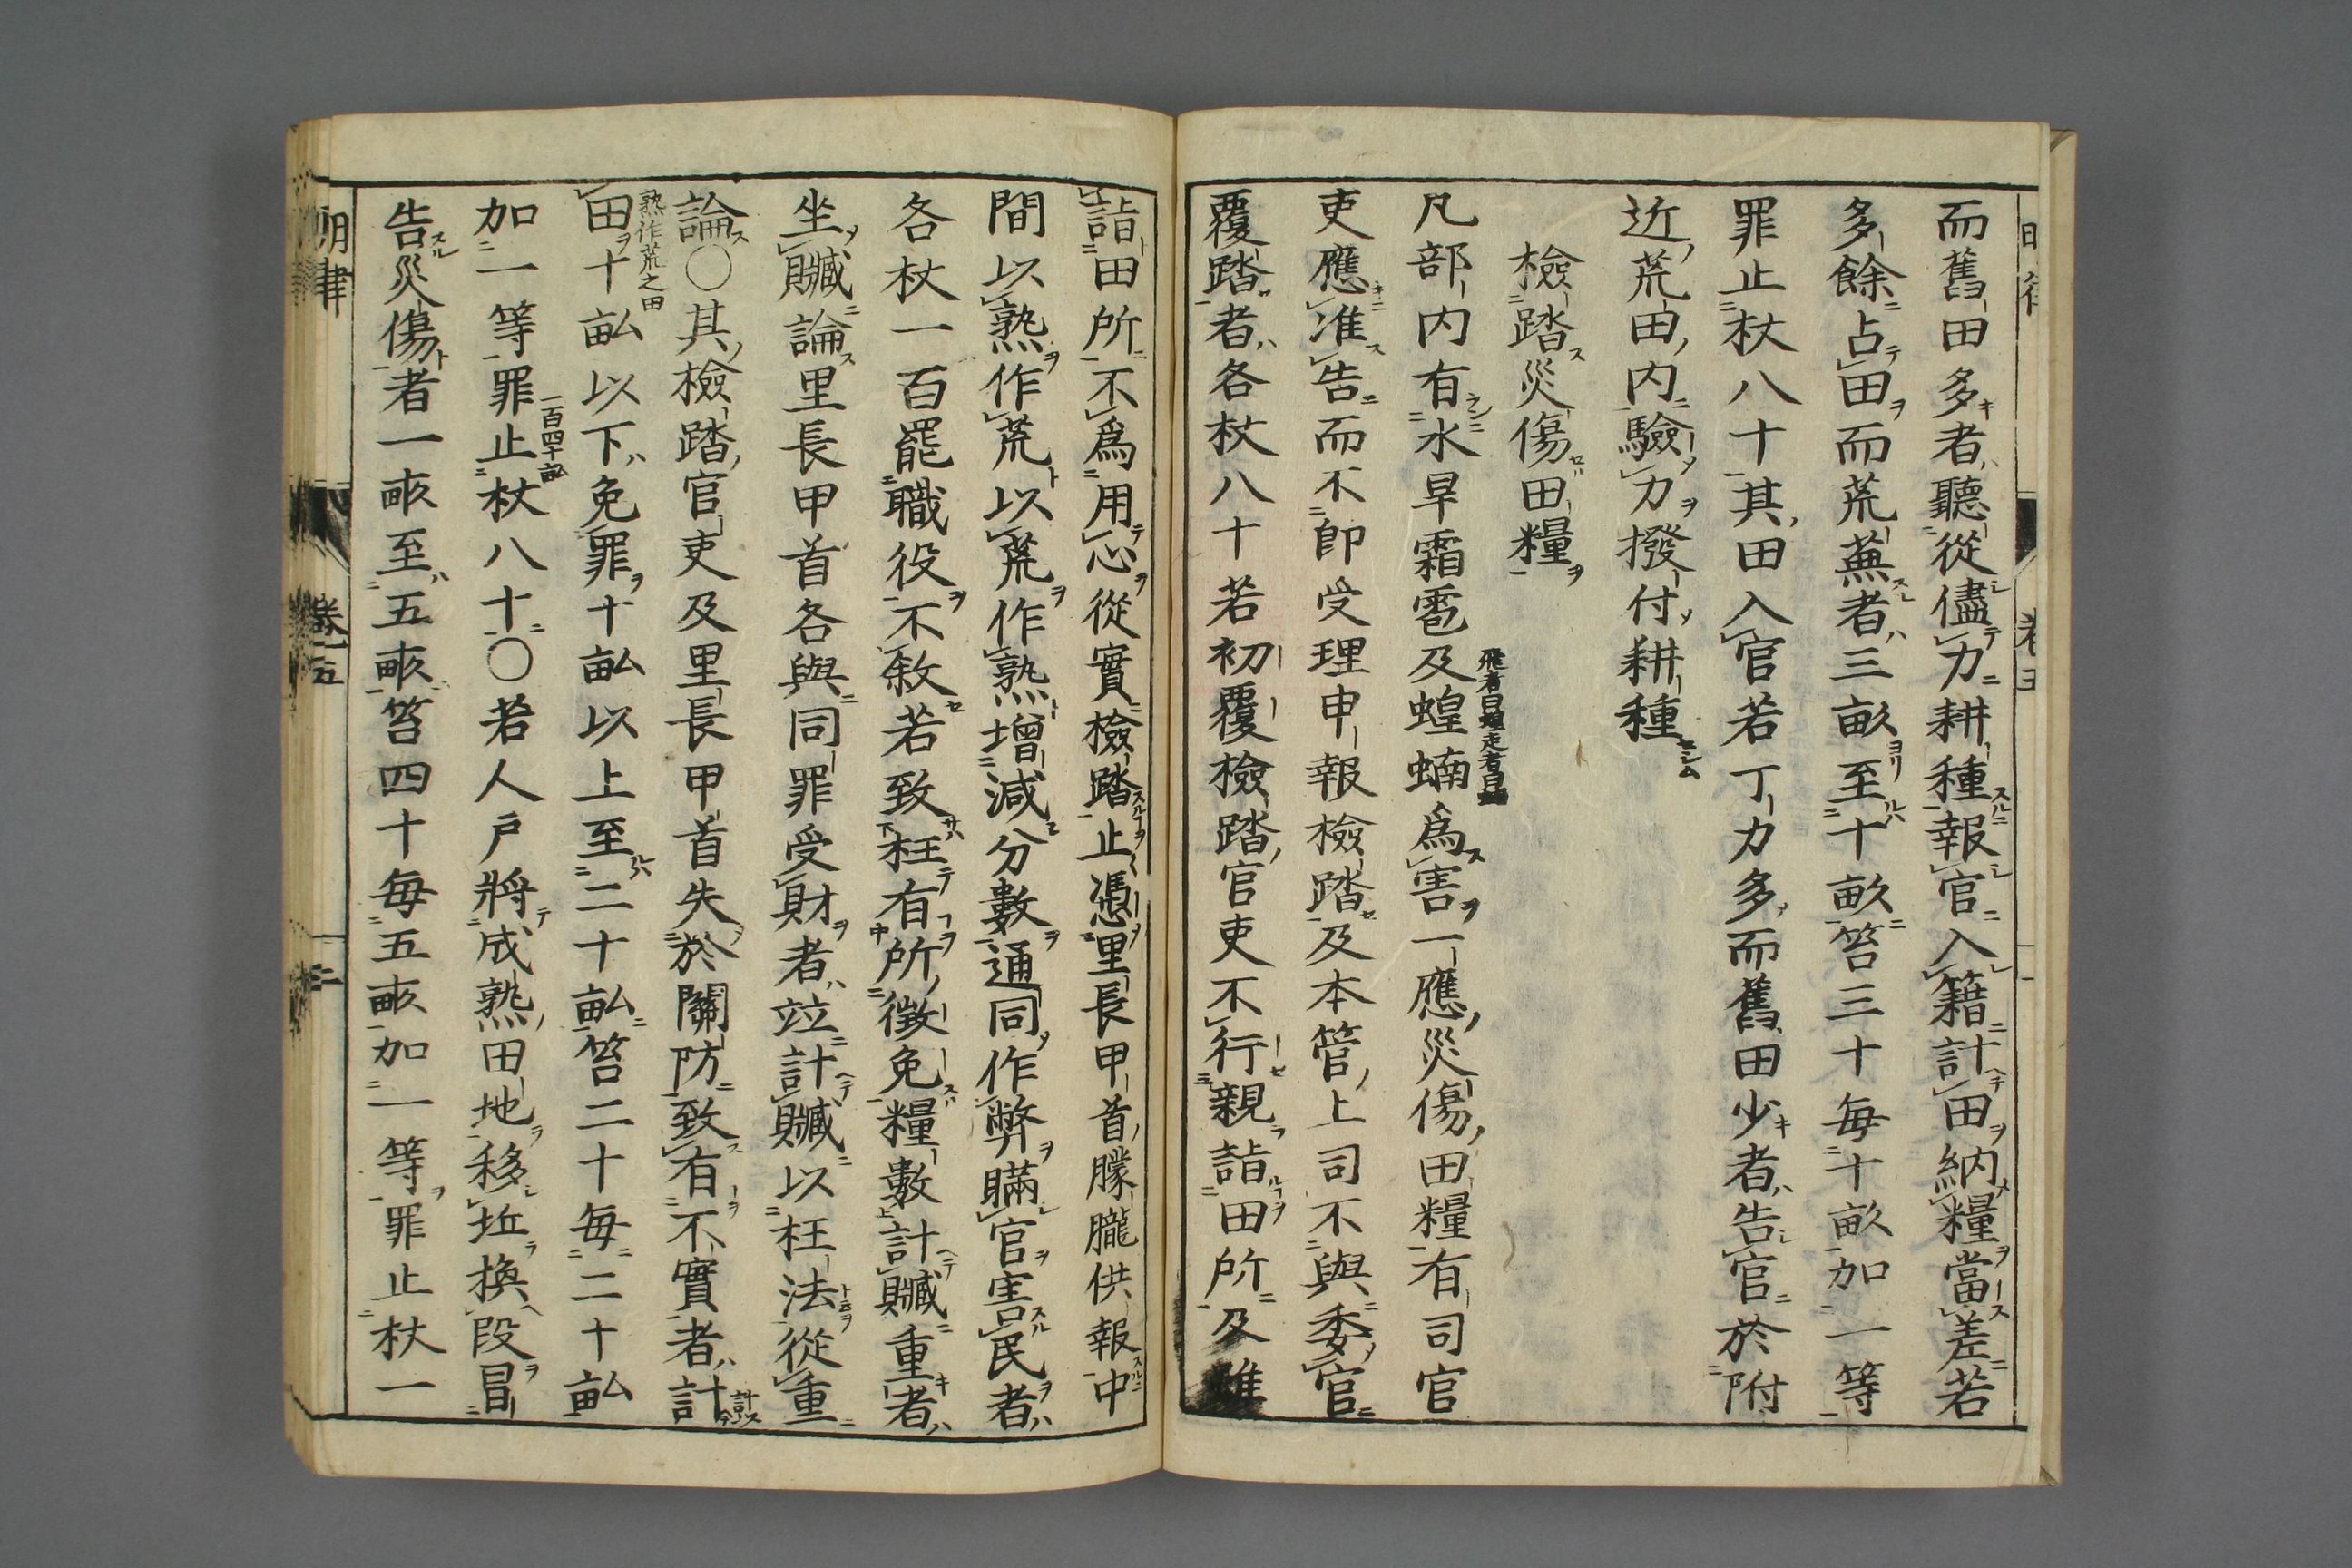 而舊田多者聽從儘力耕種報官入籍計田納糧當差若
多餘占田而荒蕪者三畝至十畝笞三十每十畝加一等
罪止杖八十其田入官若丁力多而舊田少者告官於附
近荒田內驗力撥付耕種
檢踏災傷田糧
凡部內有水旱霜雹及蝗蝻為害一應災傷田糧有司官
吏應准告而不即受理申報檢踏及本管上司不與委官
覆踏者各杖八十若初覆檢踏官吏不行親詣田所及雖
詣田所不為用心從實檢踏止憑里長甲首朦朧供報中
間以熟作荒以荒作熟增減分數通同作弊瞞官害民者
各杖一百罷職役不敘若致枉有所徵免糧數計贓重者
坐贓論里長甲首各與同罪受財者竝計贓以枉法從重
論〇其檢踏官吏及里長甲首失於關防致有不實者計
熟作荒之田
田十畝以下免罪十畝以上至二十畝笞二十每二十畝
加一等罪止杖八十〇若人戶將成熟田地移坵換段冒
一百四十畝
告災傷者一畝至五畝笞四十每五畝加一等罪止杖一